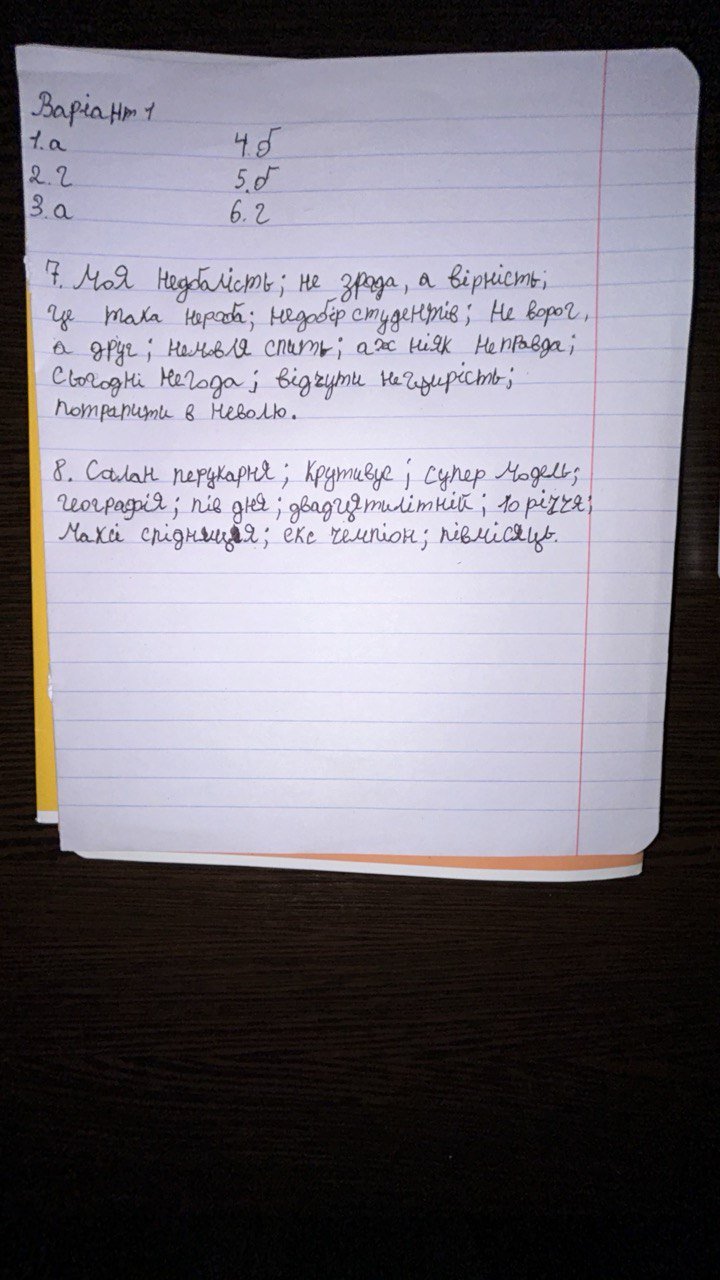 Варіант 1
1. а 4. б
2. г 5. б
3. а 6. г
7. Моя недбалість; не зрада, а вірність;
це така нероба; недобір студентів; не ворог,
а друг; немовля спить; аж ніяк неправда;
сьогодні негода; відчути нещирість;
потрапити в неволю.
8. Салан перукарня; крутивус; супер модель;
географія; пів дня; двадцятилітній; 10 річчя;
максі спідниця; екс чемпіон; півмісяць.